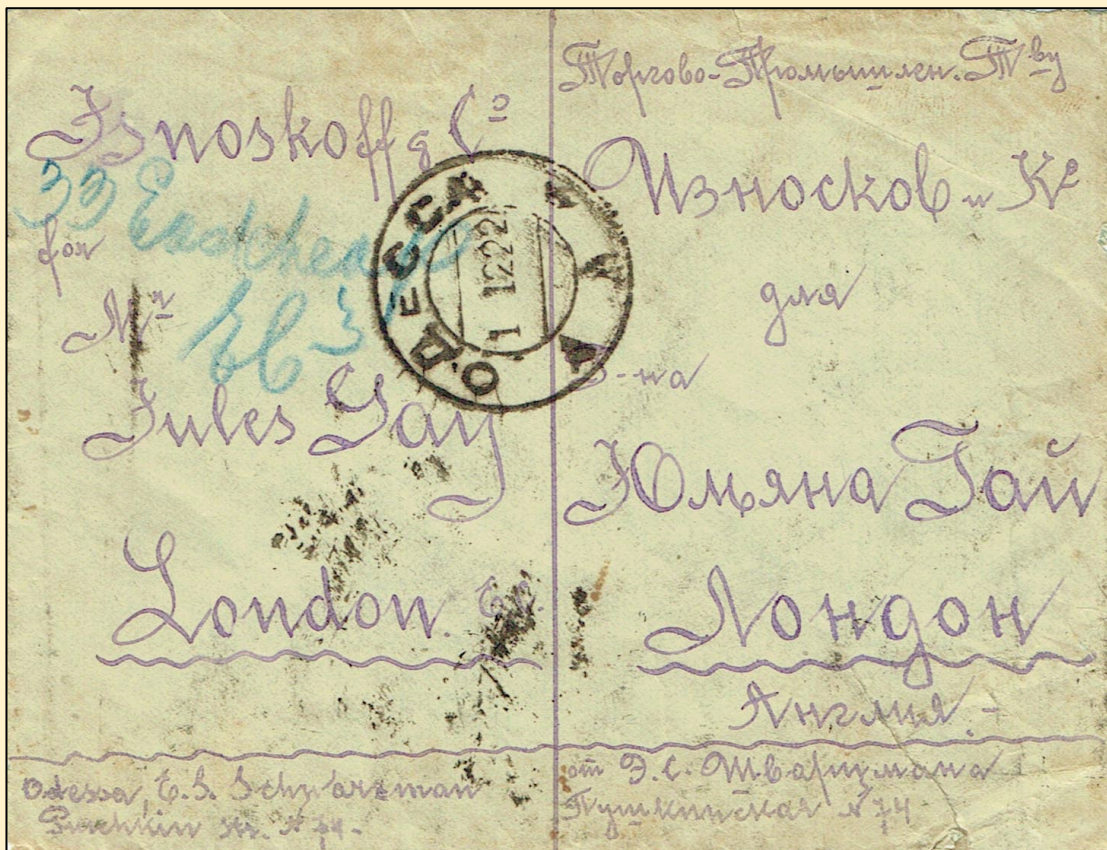 Isnoskoff & Cº
33 Eastcheap
for
Mr
EC3
Jules Gay
London. E.C.
Odessa, E. S. Schwarzman
Puschkin str. № 74.
Торгово-Промышлен. Т-ву
Износков и Кº
для
Г-на
Юльяна Гай
Лондон
Англия
от Э. С. Шварцмана
Пушкинская № 74
ОДЕССА
1 12 22